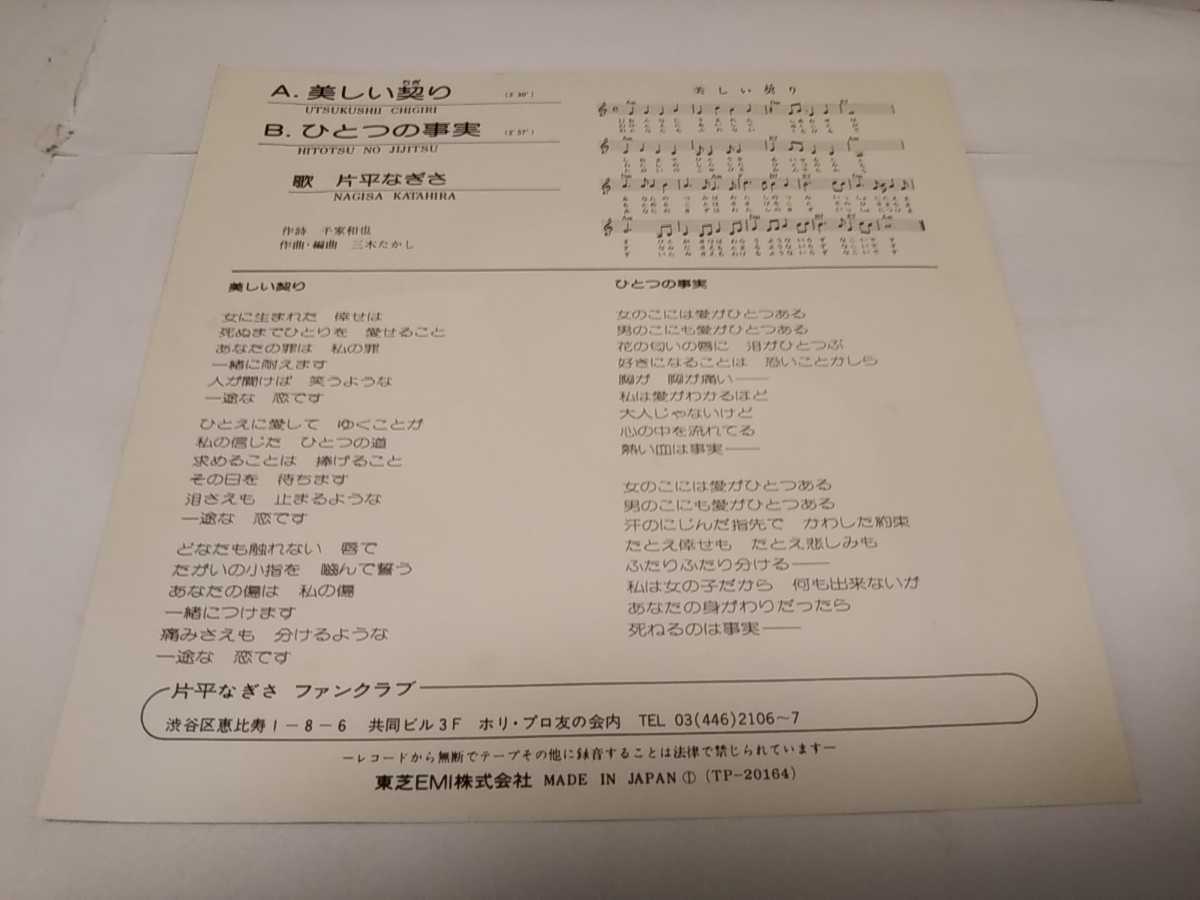 A. 美しい契り
ちぎ
UTSUKUSHII CHIGIRI
B. ひとつの事実 (2'57")
HITOTSU NO JIJITSU
歌 片平なぎさ
NAGISA KATAHIRA
作詩 千家和也
作曲・編曲 三木たかし
美しい契り
美しい契り
女に生まれた 倖せは
死ぬまでひとりを 愛せること
あなたの罪は 私の罪
一緒に耐えます
人が聞けば 笑うような
一途な 恋です
ひとえに愛して ゆくことが
私の信じた ひとつの道
求めることは 捧げること
その日を 待ちます
泪さえも 止まるような
一途な 恋です
どなたも触れない 唇で
たがいの小指を 噛んで誓う
あなたの傷は 私の傷
一緒につけます
痛みさえも 分けるような
一途な 恋です
ひとつの事実
女のこには愛がひとつある
男のこにも愛がひとつある
花の匂いの唇に 泪がひとつぶ
好きになることは 恐いことかしら
胸が 胸が痛い――
私は愛がわかるほど
大人じゃないけど
心の中を流れてる
熱い血は事実――
女のこには愛がひとつある
男のこにも愛がひとつある
汗のにじんだ指先で かわした約束
たとえ倖せも たとえ悲しみも
ふたりふたり分ける――
私は女の子だから 何も出来ないが
あなたの身がわりだったら
死ねるのは事実――
片平なぎさ ファンクラブ
渋谷区恵比寿1-8-6 共同ビル3F ホリ・プロ友の会内 TEL 03(446)2106~7
―レコードから無断でテープその他に録音することは法律で禁じられています―
東芝EMI株式会社 MADE IN JAPAN ① (TP-20164)